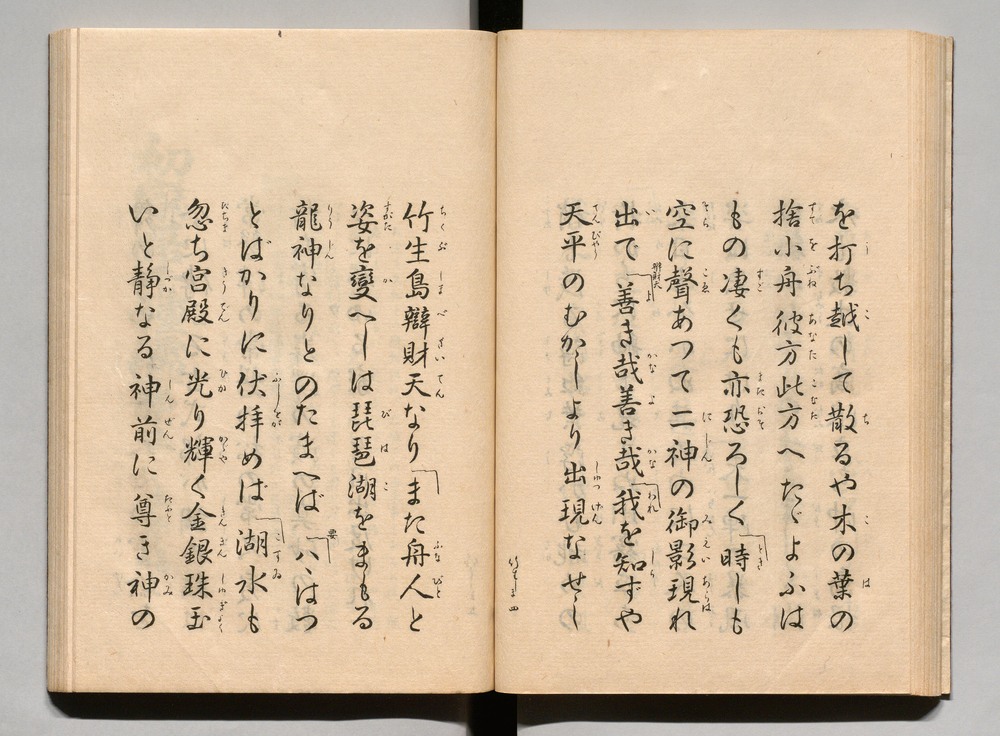 を打ち越して散るや木の葉の
捨小舟彼方此方へたゞよふは
もの凄くも亦恐ろしく時しも
空に聲あつて二神の御影現れ
出で善き哉善き哉我を知ずや
天平のむかしより出現なせし
竹生島辯財天なりまた舟人と
姿を變へしは琵琶湖をまもる
龍神なりとのたまへば ハゝはつ
とばかりに伏拝めば湖水も
忽ち宮殿に光り輝く金銀珠玉
いと静なる神前に尊き神の